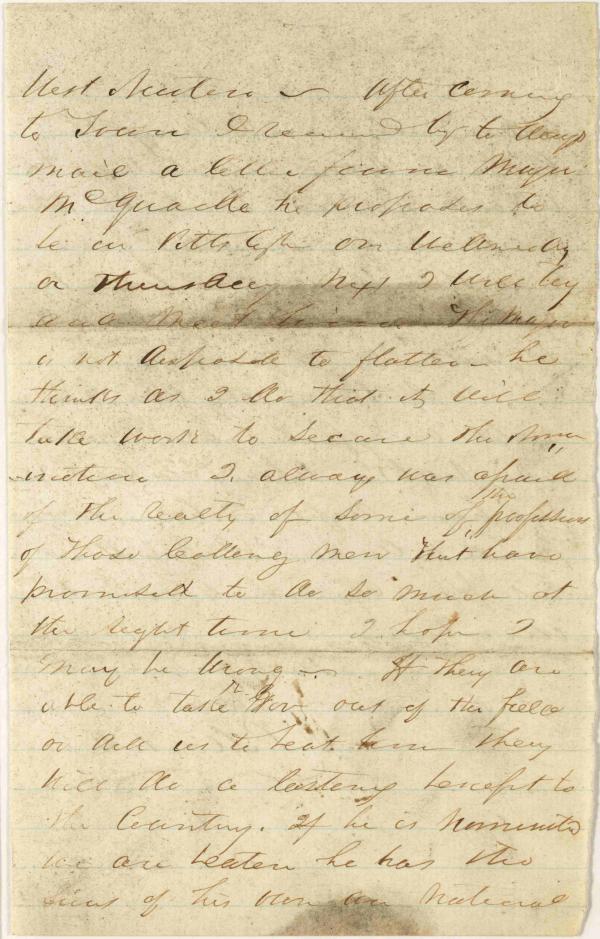 West Newton — After coming
to Town I received by to days
mail a letter from Major
McQuaide he proposes to
be in Pittsbgh on Wednesday
or Thursday next I will try
and meet him The Major
is not disposed to flatter — he
thinks as I do that it will
take work to secure the nom
ination I always was afraid
of the reality of some of the professions
of those leading men that have
promised to do so much at
the right time I hope I
may be wrong — If they are
able to take the Gov out of the field
or aid us to beat him they
will do a lasting benefit to
the Country. If he is nominated
we are beaten he has the
sins of his own and National